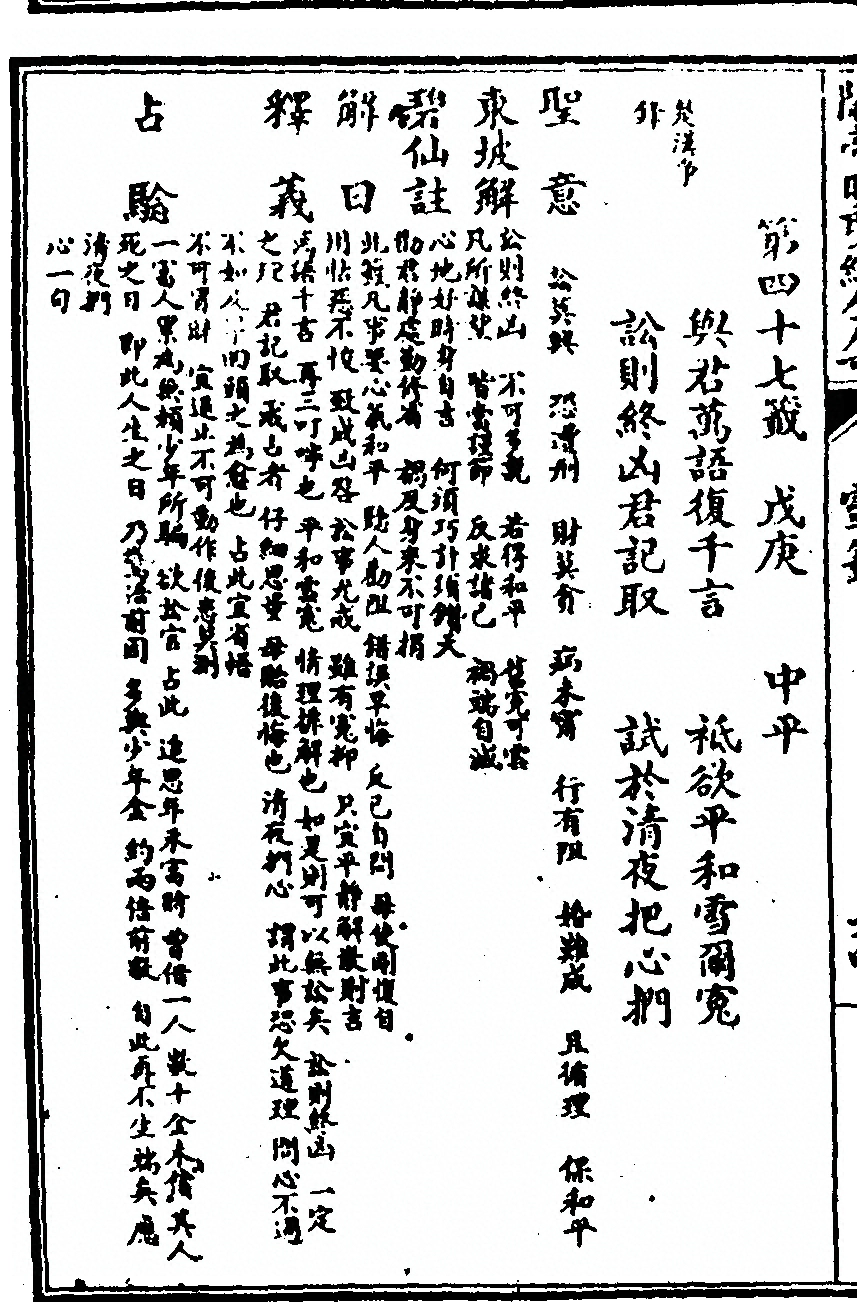 第四十七籤 戊庚 中平
與君萬語復千言 祗欲平和雪爾寃
訟則終凶君記取 試於清夜把心捫
聖意 訟莫興 恐遭刑 財莫貪 病未寧 行有阻 婚難成 且循理 保和平
東坡解 訟則終凶 不可多親 若得和平 舊寃可雲
凡所謀望 皆當謹節 反求諸己 禍端自滅
碧仙註 心地好時身自言 何須巧計瑣瞞天
勸君靜處勤修省 禍及身來不可捐
解曰 此籤凡事要心氣和平 聽人勸阻 錯誤早悔 反己自問 毋使剛愎自
用怙惡不悛 致成凶咎 訟事尤戒 雖有寃抑 只宜平靜解散則吉
釋義 萬語千言 再三叮嚀也 平和雪寃 情理排解也 如是則可以無訟矣 訟則終凶 一定
之理 君記取 戒占者 仔細思量 毋貽後悔也 清夜捫心 謂此事恐欠道理 問心不過
不如及早回頭之為愈也 占此宜省悟
不可冒財 宜退止不可動作後患莫測
占驗 一富人累為無賴少年所騙 欲訟官 占此 追思年未富時 曾借一人數十金未償 其人
死之日 即此人生之日 乃恍悟前因 多與少年金 約兩倍前數 自此再不生端矣 應
清夜捫
心一句